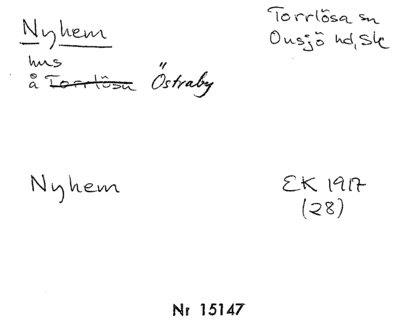 Nyhem
Torrlösa sn
Onsjö hd, Sk
hus
å Torrlösa Östraby
Nyhem
EK 1917
(28)
Nr 15147